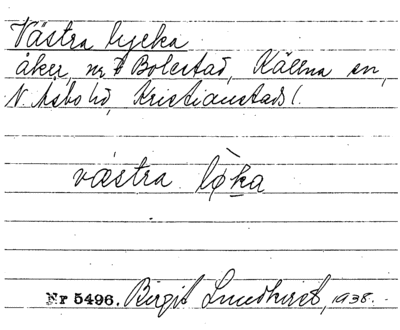 Västra lycka
åker, nr 7 Bolestad, Källna sn,
N. Åsbo hd, Kristianstads l.
västra lø̀ka
Nr 5496. Birgit Lundkvist, 1938.